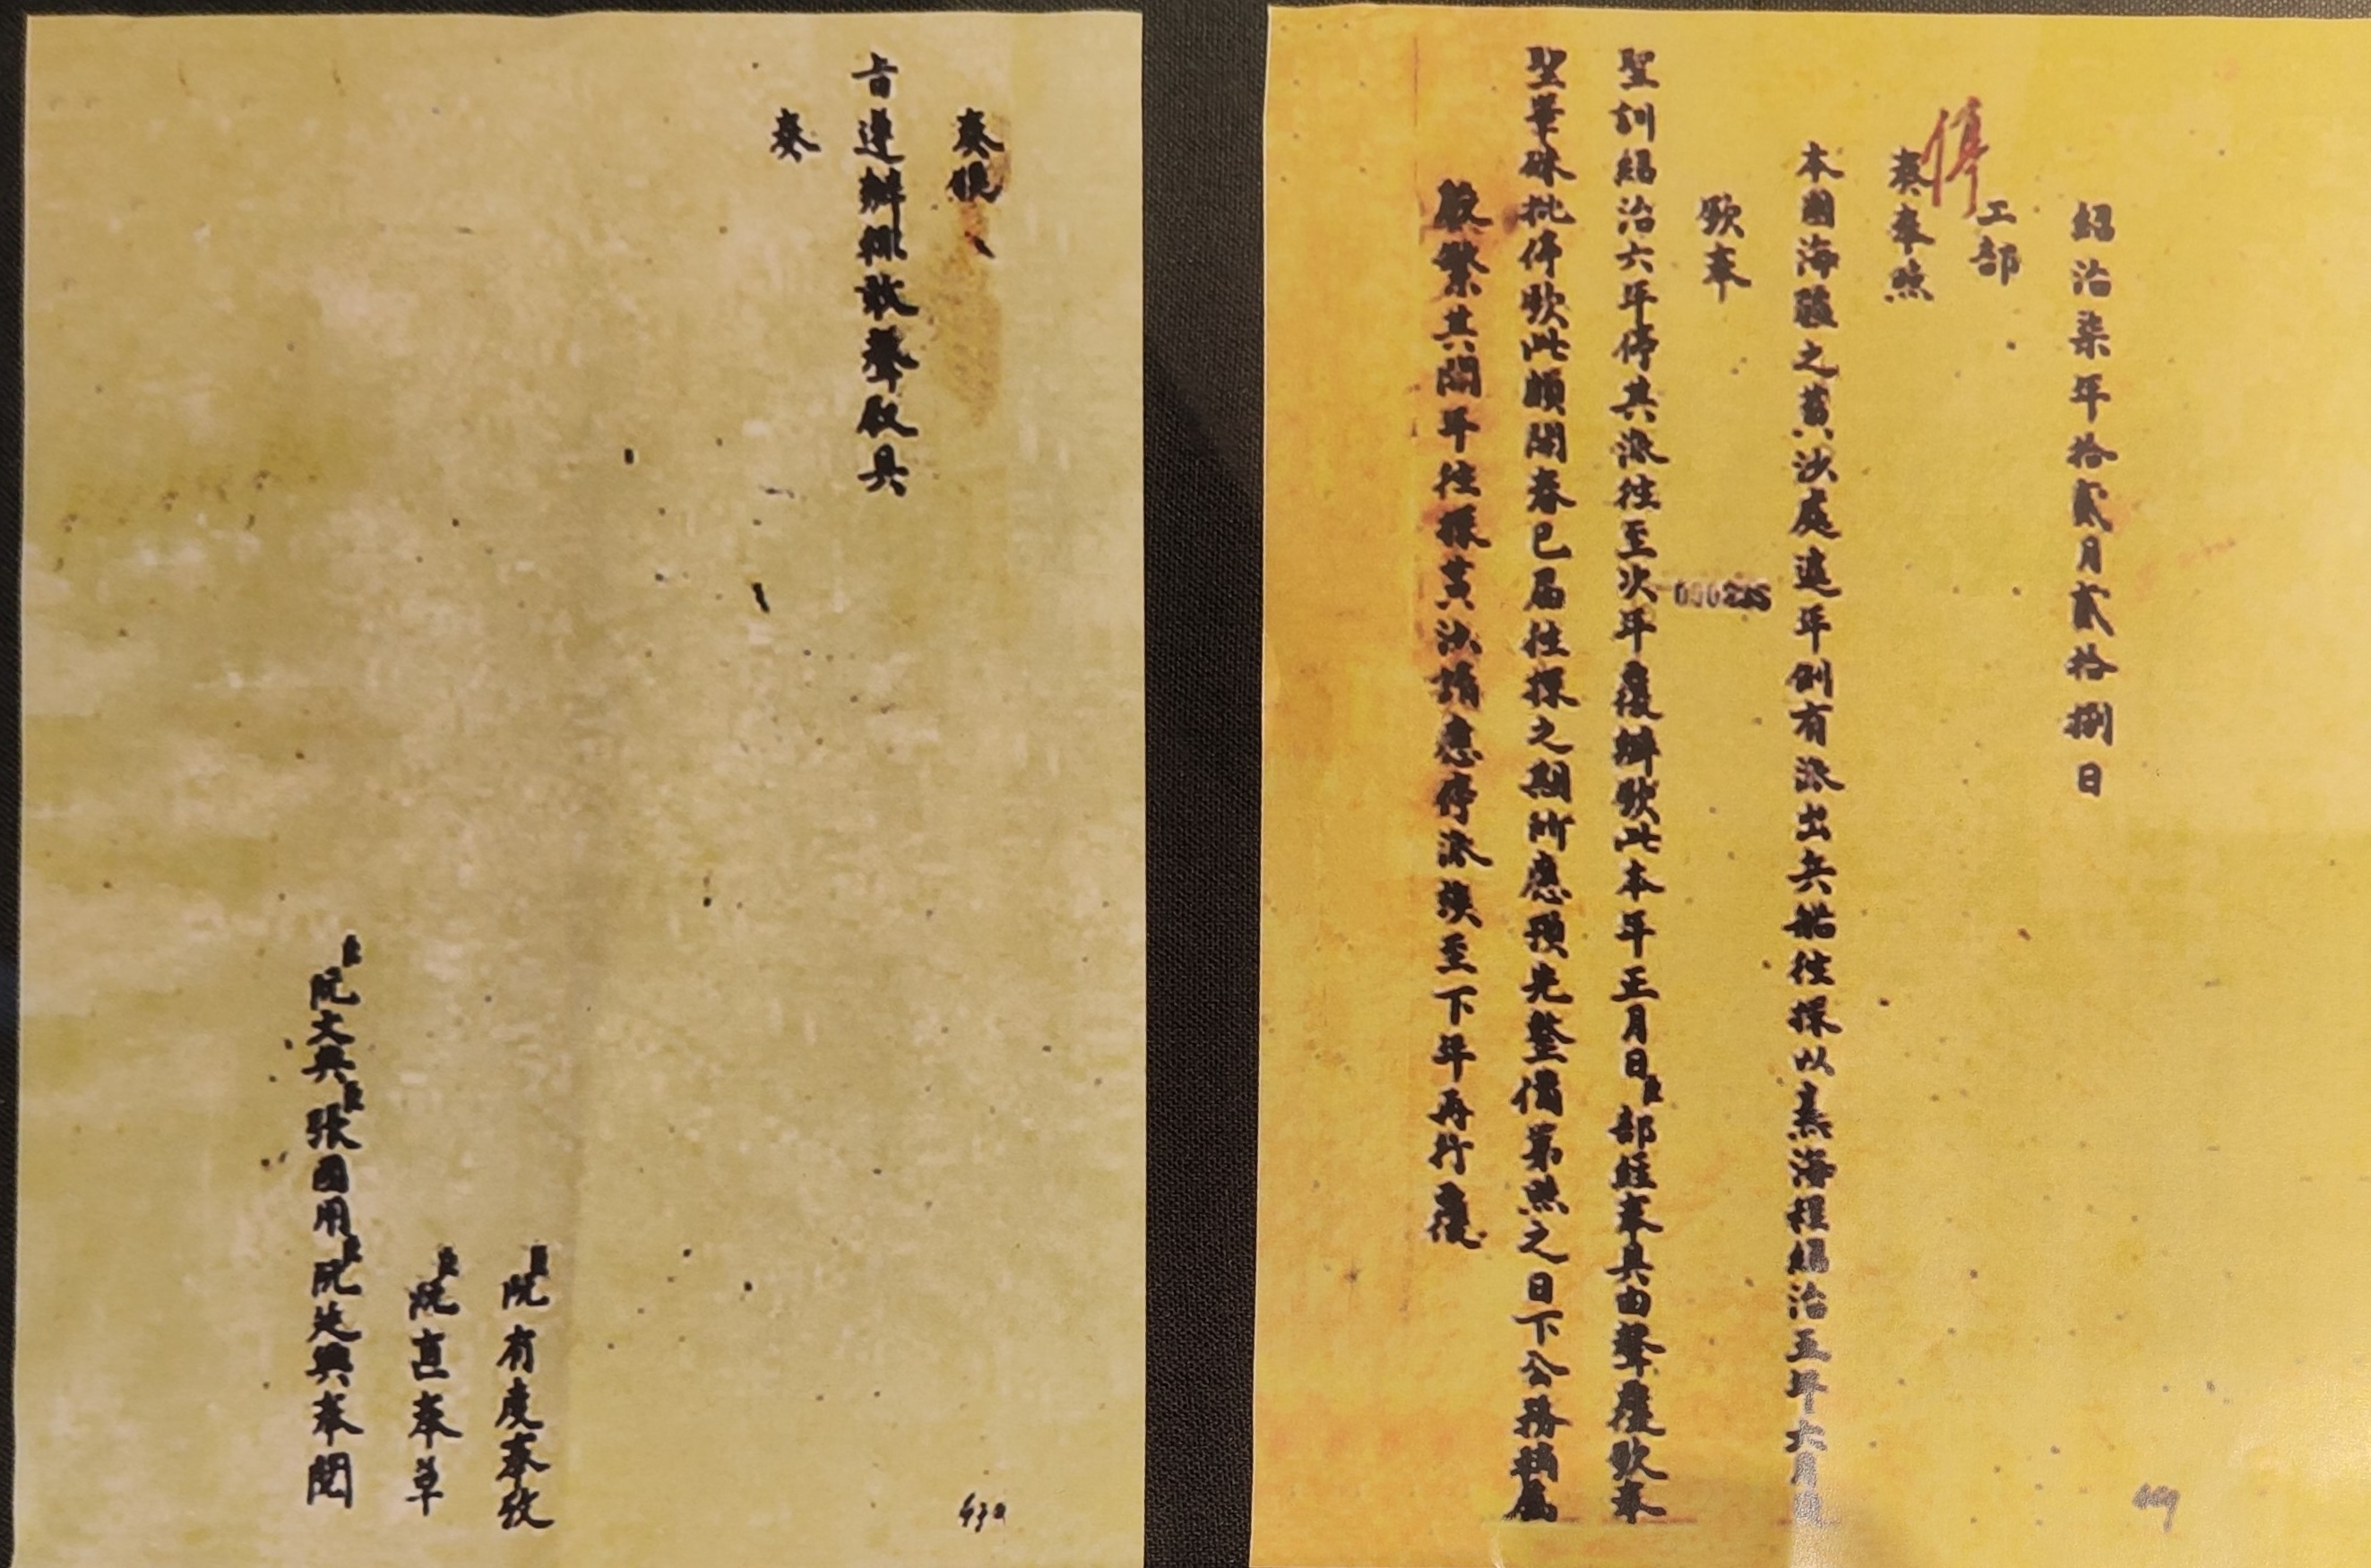 紹治柒年拾貳月貳拾捌日
工部
停
奏奉照
本國海疆之黃沙處遞年例有派出兵船往探以熟海程紹治五年六月
欽奉
聖訓紹治六年停其派往至次年覆辦欽此本年正月日臣部經奉具由聲覆欽奉
聖筆硃批停欽此順開春已屆往探之期所應預先整俻第照之日下公務稍屬
殷繁其開年往探黃沙請應停派竢至下年再行覆
奏候
旨遵辦輒敢聲叙具
奏
臣阮有度奉攷
臣阮直奉草
臣阮文典臣張國用臣阮廷興奉閱